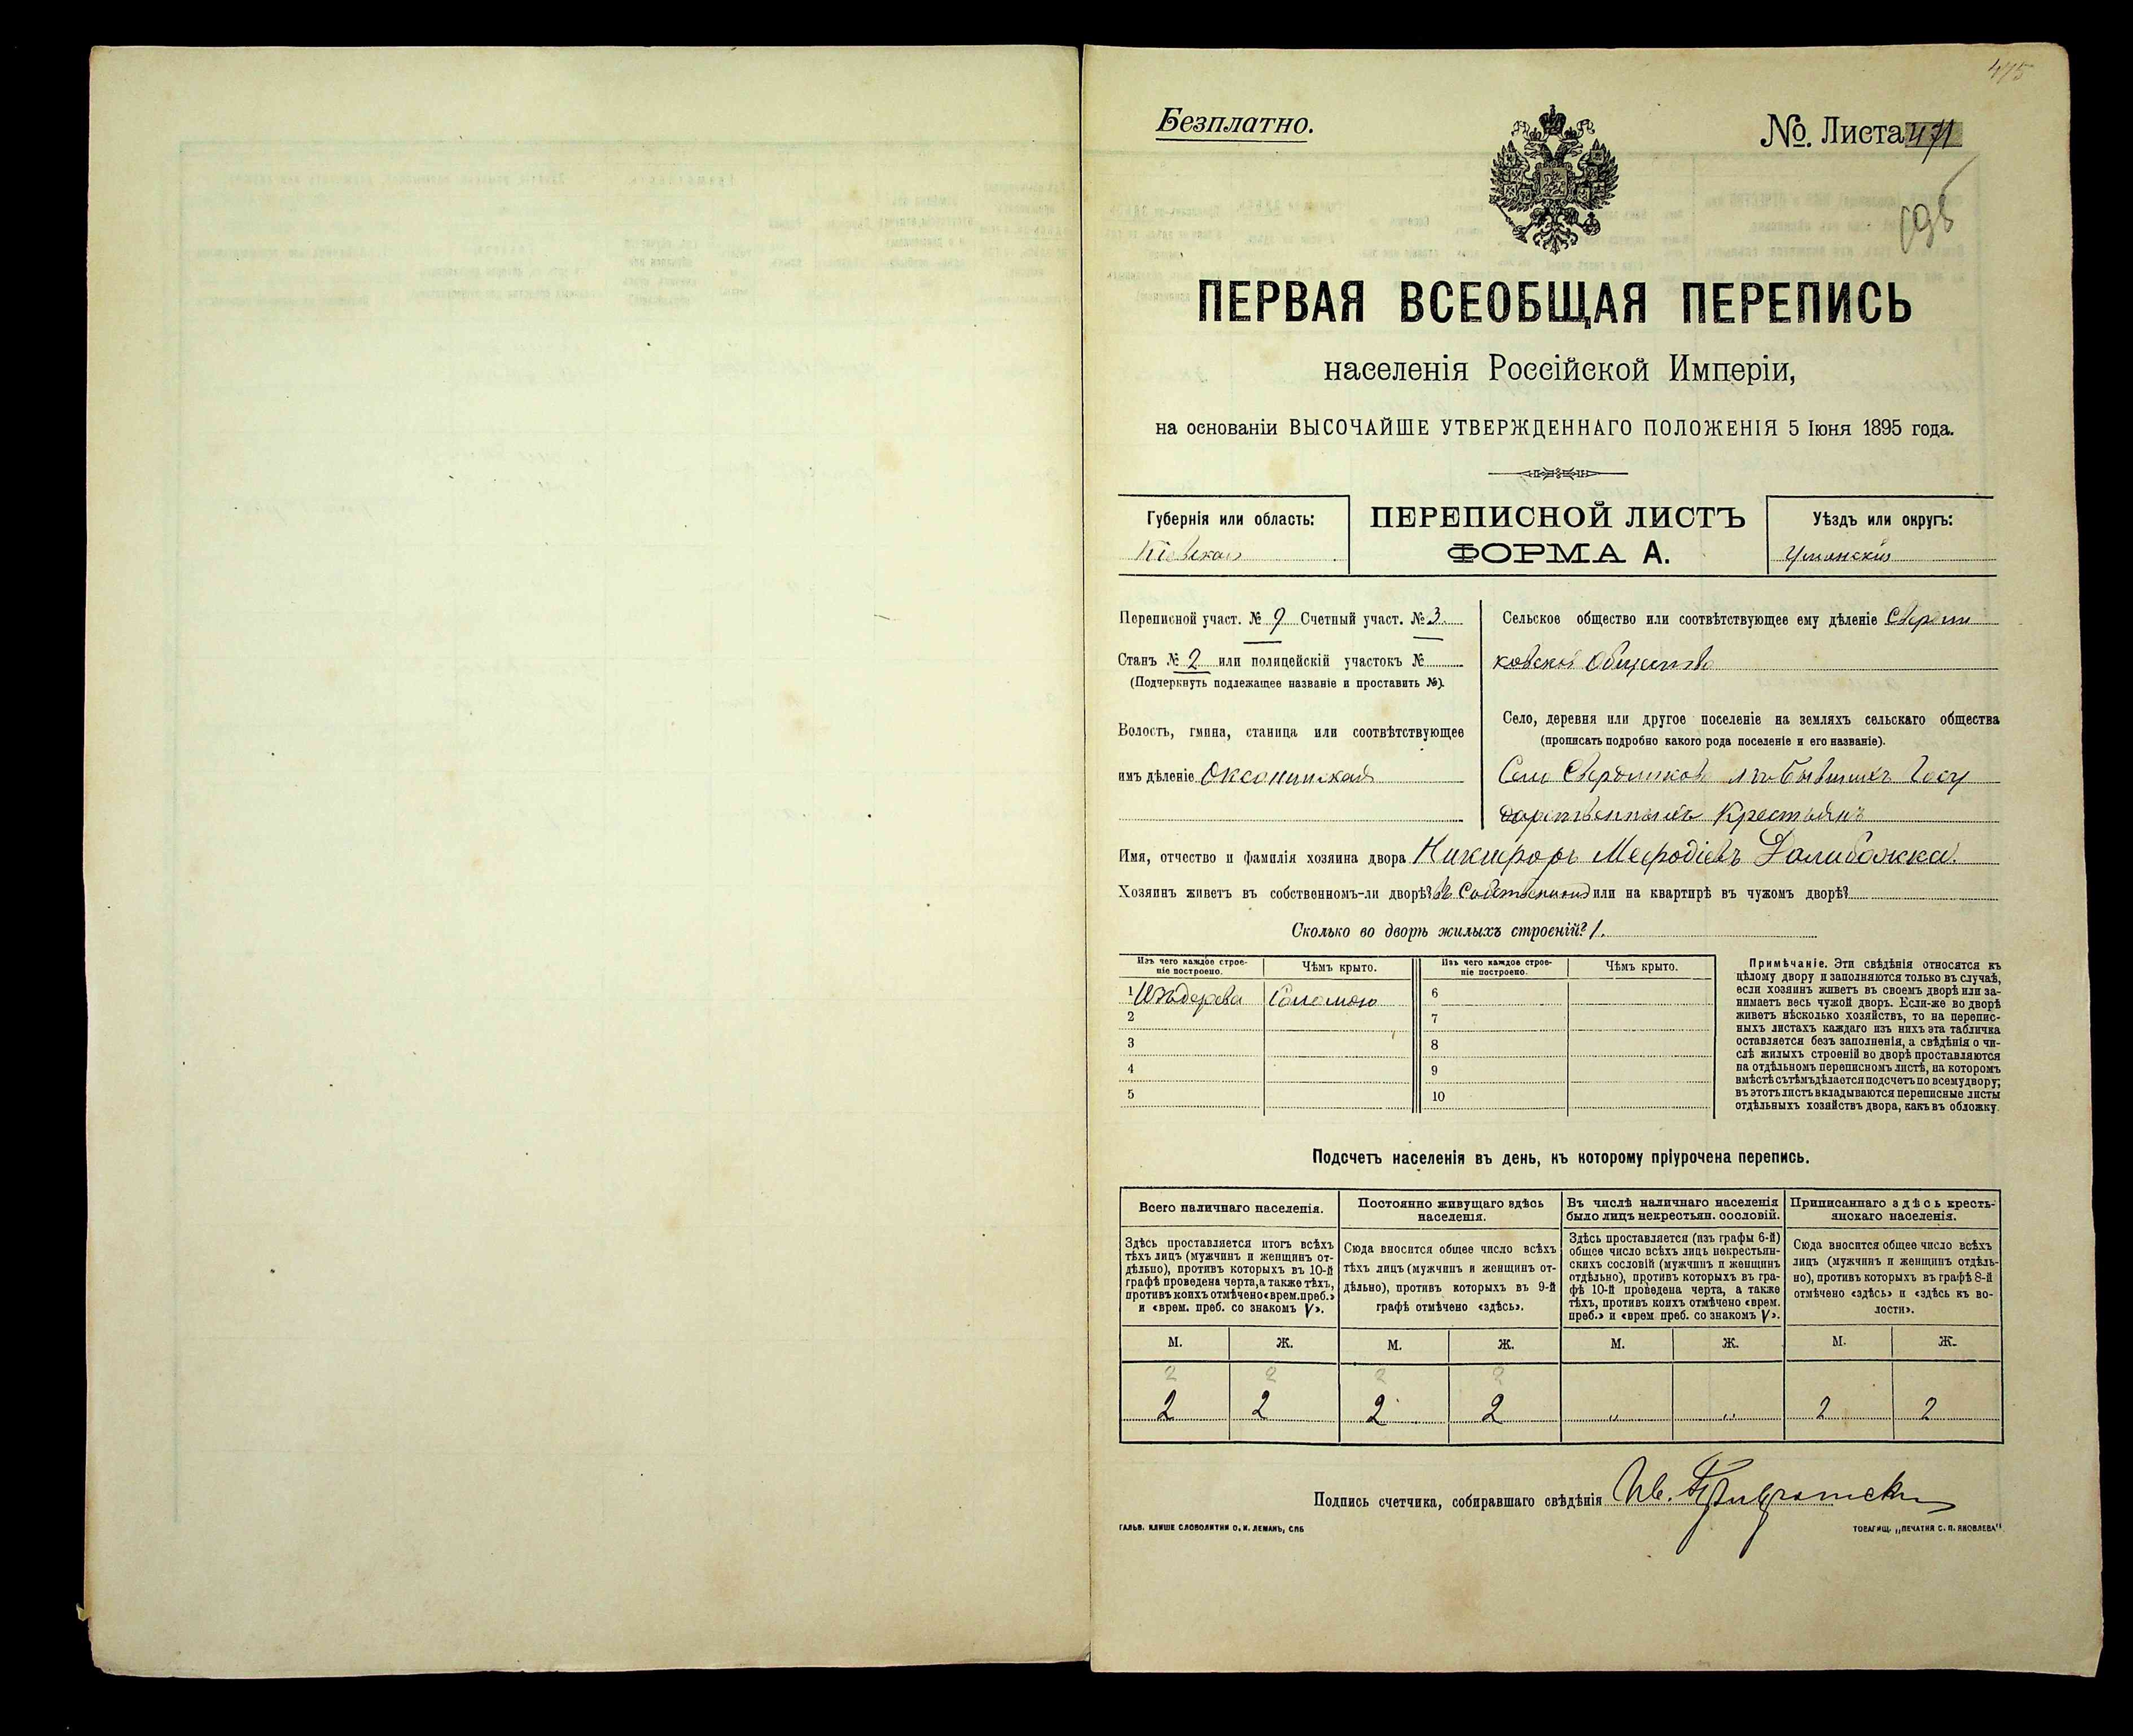 475
Безплатно.
№. Листа 471
195
ПЕРВАЯ ВСЕОБЩАЯ ПЕРЕПИСЬ
населенія Россійской Имперіи,
на основаніи ВЫСОЧАЙШЕ УТВЕРЖДЕННАГО ПОЛОЖЕНІЯ 5 Іюня 1895 года.
Губернія или область:
Кіевская
ПЕРЕПИСНОЙ ЛИСТЪ
ФОРМА А.
Уѣздъ или округъ:
Уманскій
Переписной участ. № 9 Счетный участ. № 3.
Станъ № 2 или полицейскій участокъ №
(Подчеркнуть подлежащее названіе и проставить №).
Волость, гмина, станица или соотвѣтствующее
имъ дѣленіе Оксанинская
Сельское общество или соотвѣтствующее ему дѣленіе
Общество
Село, деревня или другое поселеніе на земляхъ сельскаго общества
(прописать подробно какого рода поселеніе и его названіе).
Село Свердликово Бывшихъ Госу
дарственныхъ Крестьянъ
Имя, отчество и фамилія хозяина двора Никифоръ Мефодіевъ Далибожка.
Хозяинъ живетъ въ собственномъ-ли дворѣ? Въ Собственномъ или на квартирѣ въ чужомъ дворѣ?
Сколько во дворѣ жилыхъ строеній? 1.
Изъ чего каждое строе-
ніе построено.
Чѣмъ крыто.
Изъ чего каждое строе-
ніе построено.
Чѣмъ крыто.
1 Изъ дерева Соломою 6
2 7
3 8
4 9
5 10
Примѣчаніе. Эти свѣдѣнія относятся къ
цѣлому двору и заполняются только въ случаѣ,
если хозяинъ живетъ въ своемъ дворѣ или за-
нимаетъ весь чужой дворъ. Если-же во дворѣ
живетъ нѣсколько хозяйствъ, то на перепис-
ныхъ листахъ каждаго изъ нихъ эта табличка
оставляется безъ заполненія, а свѣдѣнія о чи-
слѣ жилыхъ строеній во дворѣ проставляются
на отдѣльномъ переписномъ листѣ, на которомъ
вмѣстѣ съ тѣмъ дѣлается подсчетъ по всему двору;
въ этотъ листъ вкладываются переписные листы
отдѣльныхъ хозяйствъ двора, какъ въ обложку.
Подсчетъ населенія въ день, къ которому пріурочена перепись.
Всего наличнаго населенія.
Здѣсь проставляется итогъ всѣхъ
тѣхъ лицъ (мужчинъ и женщинъ от-
дѣльно), противъ которыхъ въ 10-й
графѣ проведена черта, а также тѣхъ,
противъ коихъ отмѣчено «врем. преб.»
и «врем. преб. со знакомъ V».
Постоянно живущаго здѣсь
населенія.
Сюда вносится общее число всѣхъ
тѣхъ лицъ (мужчинъ и женщинъ от-
дѣльно), противъ которыхъ въ 9-й
графѣ отмѣчено «здѣсь».
Въ числѣ наличнаго населенія
было лицъ некрестьян. сословій.
Здѣсь проставляется (изъ графы 6-й)
общее число всѣхъ лицъ некрестьян-
скихъ сословій (мужчинъ и женщинъ
отдѣльно), противъ которыхъ въ гра-
фѣ 10-й проведена черта, а также
тѣхъ, противъ коихъ отмѣчено «врем.
преб.» и «врем преб. со знакомъ V».
Приписаннаго здѣсь кресть-
янскаго населенія.
Сюда вносится общее число всѣхъ
лицъ (мужчинъ и женщинъ отдѣль-
но), противъ которыхъ въ графѣ 8-й
отмѣчено «здѣсь» и «здѣсь къ во-
лости».
М. Ж. М. Ж. М. Ж. М. Ж.
2 2 2 2
2 2 2 2 " " 2 2
Подпись счетчика, собиравшаго свѣдѣнія Ив.
ГАЛЬВ. КЛИШЕ СЛОВОЛИТНИ О. И. ЛЕМАНЪ, СПБ
ТОВАРИЩ. „ПЕЧАТНЯ С. П. ЯКОВЛЕВА".